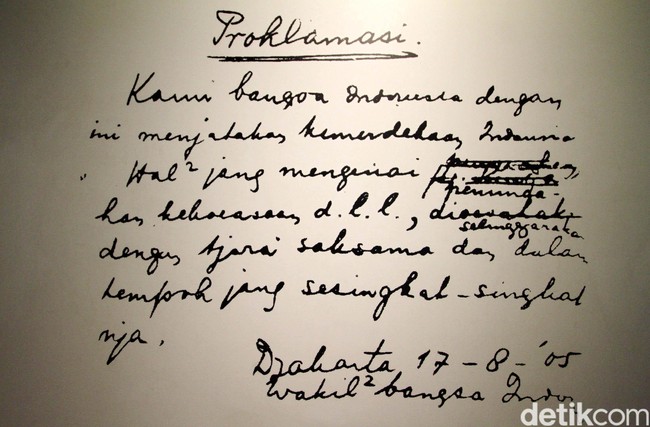 Proklamasi.
Kami bangsa Indonesia dengan
ini menjatakan kemerdekaan Indonesia
Hal² jang mengenai
peminda-
han kekoeasaan d.l.l., di
selenggarakan
dengan tjara saksama dan dalam
tempoh jang sesingkat-singkat
nja.
Djakarta 17-8-'05
Wakil² bangsa Indon
detikcom